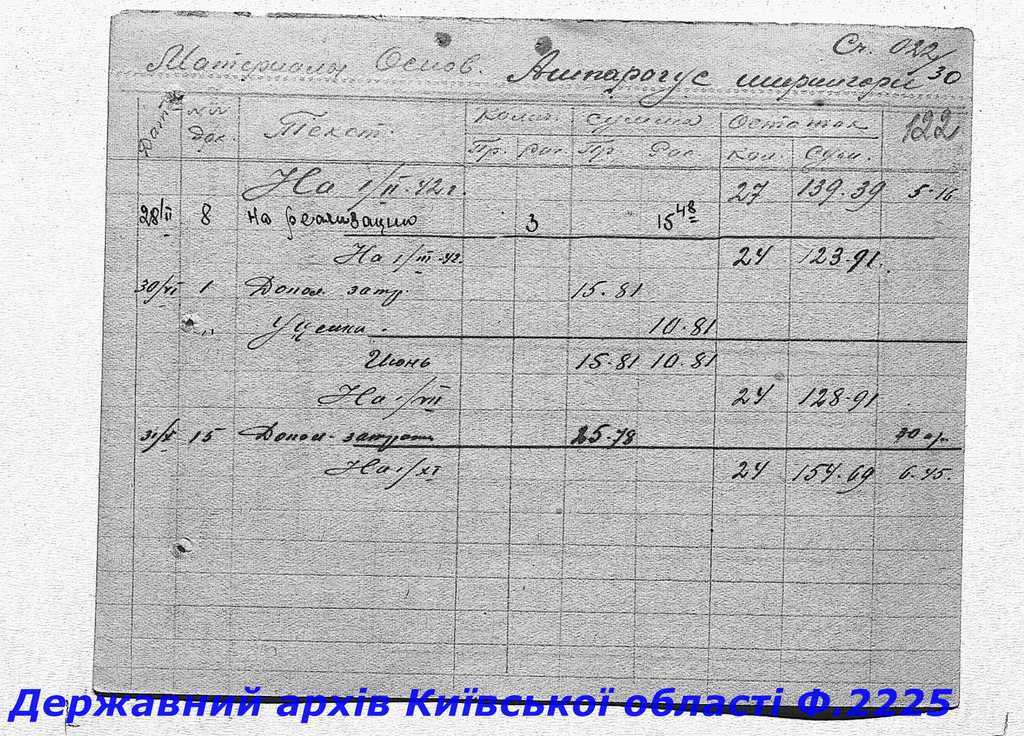 Сч. 022/30
Материалы Основ. Аспарагус шпренгери
Дата №№ док. Текст. Колич. Сумма Остаток 122
Пр. рас. Пр. Рас. Кол. Сум.
На 1/II-42 г. 27 139.39 5-16
28/II 8 на реализацию 3 15 48
На 1/III-42. 24 123-91.
30/VI 1 Допол. затр. 15.81
" Уценки. 10.81
Июнь 15.81 10.81
На 1/VII 24 128-91
31/X 15 Допол. затраты 25.78
На 1/XI 24 154.69 6-45.
Державний архів Київської області Ф.2225